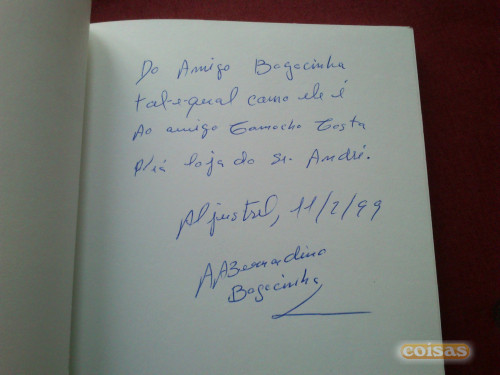 Do Amigo Bagacinha
tal-e-qual como ele é
Ao amigo Camacho Costa
p'rá loja do Sr. André.
Aljustrel, 11/2/99
AABernardino
Bagacinha
coisas